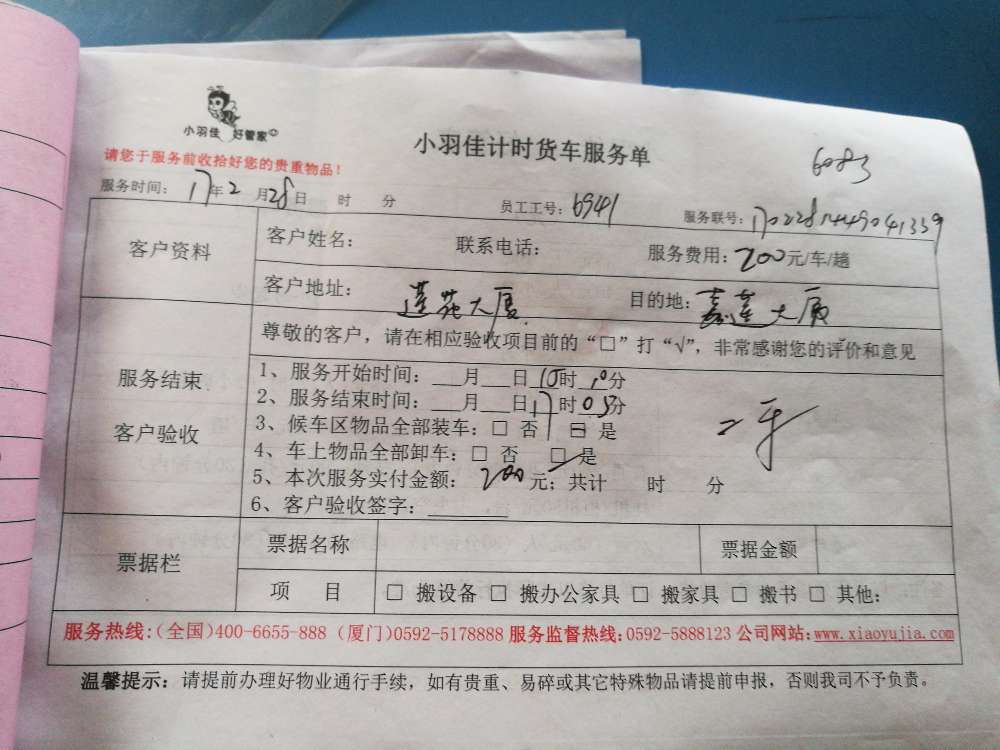 小羽佳 好管家
小羽佳计时货车服务单
6083
请您于服务前收拾好您的贵重物品！
服务时间：17年2月28日 时 分 员工工号：6941 服务联号：1702281449041339
客户资料 客户姓名： 联系电话： 服务费用：200元/车/趟
客户地址：莲花大厦 目的地：嘉莲大厦
服务结束 客户验收
尊敬的客户，请在相应验收项目前的“□”打“√”，非常感谢您的评价和意见
1、服务开始时间：___月___日 时10分
2、服务结束时间：___月___日17时05分
3、候车区物品全部装车：□ 否 □ 是
4、车上物品全部卸车：□ 否 □ 是
5、本次服务实付金额：200元；共计 时 分
6、客户验收签字：________
票据栏 票据名称 票据金额
项 目 □ 搬设备 □ 搬办公家具 □ 搬家具 □ 搬书 □ 其他：
服务热线：(全国)400-6655-888 (厦门)0592-5178888 服务监督热线：0592-5888123 公司网站：www.xiaoyujia.com
温馨提示：请提前办理好物业通行手续，如有贵重、易碎或其它特殊物品请提前申报，否则我司不予负责。